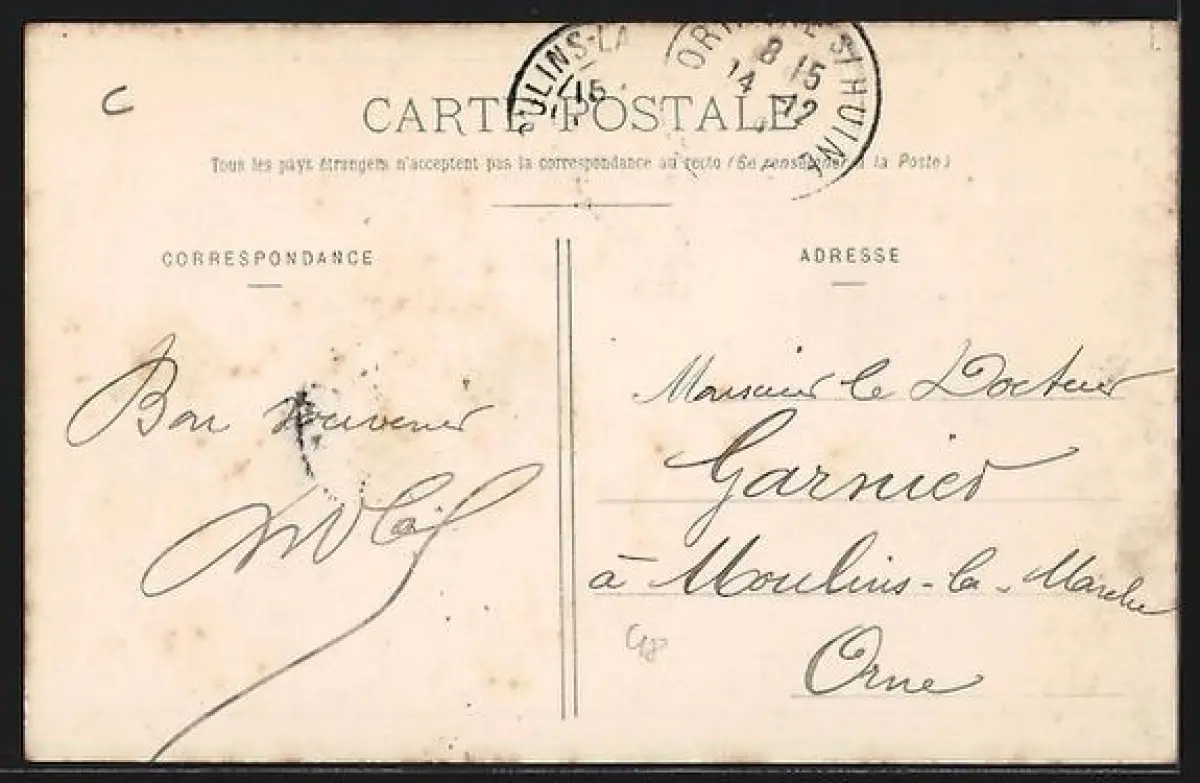 C
CARTE POSTALE
Tous les pays étrangers n'acceptent pas la correspondance au recto (Se renseigner à la Poste)
OULINS-LA
15
8 15
14 12
ST HUINE
CORRESPONDANCE
ADRESSE
Bon souvenir
Monsieur le Docteur
Garnier
à Moulins-la-Marche
Orne
48